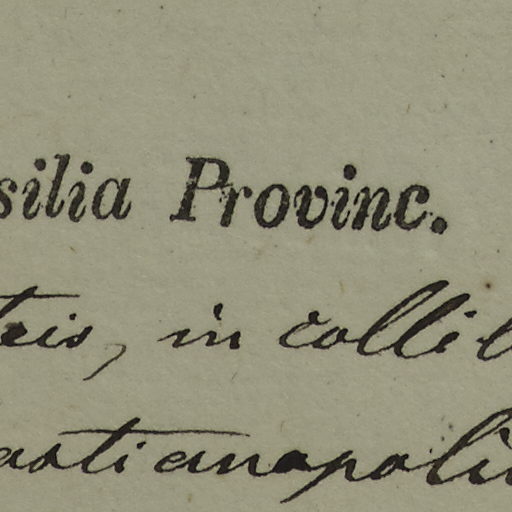 silia Provinc.
teis, in colli
astianapoli